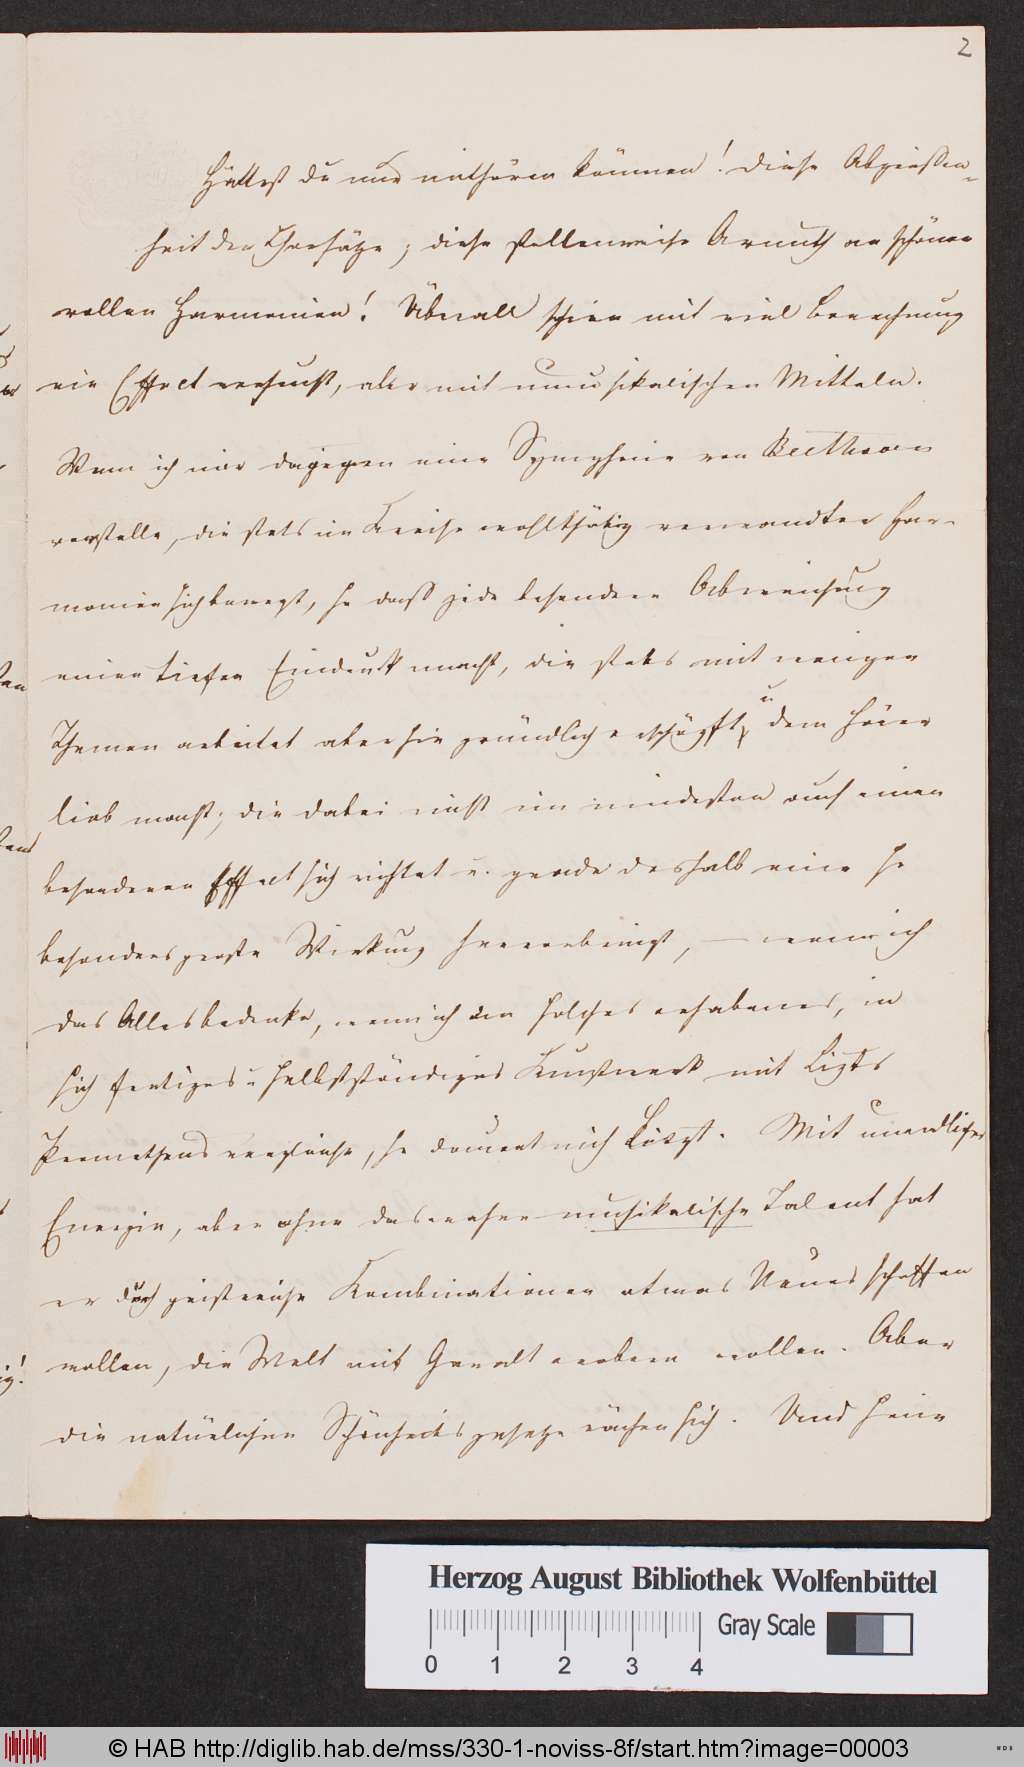 2
Hättest du nur mithören können! diese Abgerissen-
heit der Chorsätze; diese stellenweise Armuth an schönen
vollen Harmonien! Überall schien mit viel Berechnung
ein Effect versucht, aber mit unmusikalischen Mitteln.
Wenn ich mir dagegen eine Symphonie von Beethoven
vorstelle, die stets im Kreise wohlthätig verwandter Har-
monien sich bewegt, so daß jede besondere Abweichung
einen tiefen Eindruck macht, die stets mit wenigen
Themen arbeitet aber sie gründlich erschöpft u dem Hörer
lieb macht; die dabei nicht im mindesten auf einen
besonderen Effect sich richtet u. gerade deshalb eine so
besonders große Wirkung hervorbringt, — wenn ich
das Alles bedenke, wenn ich ein solches erhabenes, in
sich fertiges u selbstständiges Kunstwerk mit Lizts
Prometheus vergleiche, so dauert mich Liszt. Mit unendlicher
Energie, aber ohne das wahre musikalische Talent hat
er durch geistreiche Kombinationen etwas Neues schaffen
wollen, die Welt mit Gewalt erobern wollen. Aber
die natürlichen Schönheitsgesetze rächen sich. Und seine
Herzog August Bibliothek Wolfenbüttel
Gray Scale
0 1 2 3 4
© HAB http://diglib.hab.de/mss/330-1-noviss-8f/start.htm?image=00003